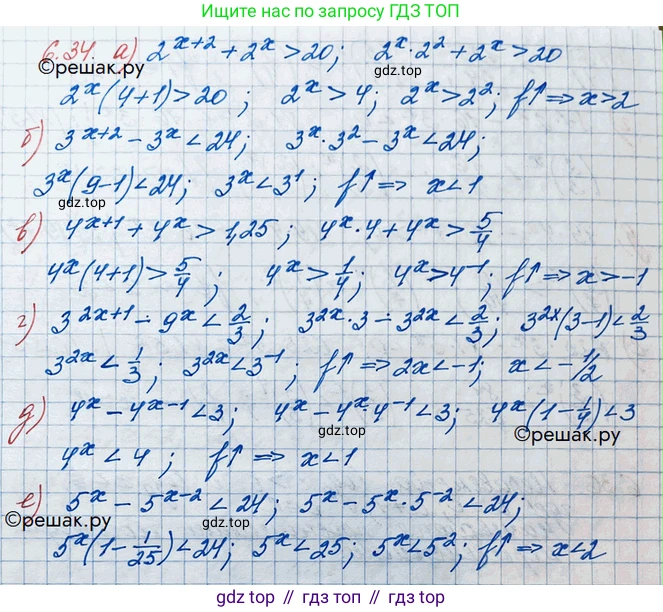 Ищите нас по запросу ГДЗ ТОП
6.34. а) 2^{x+2} + 2^x > 20; 2^x · 2^2 + 2^x > 20
©решак.ру
2^x (4+1) > 20 ; 2^x > 4; 2^x > 2^2; f↑ => x > 2
б) 3^{x+2} - 3^x < 24; 3^x · 3^2 - 3^x < 24;
3^x (9-1) < 24; 3^x < 3^1; f↑ => x < 1
gdz.top
в) 4^{x+1} + 4^x > 1,25 ; 4^x · 4 + 4^x > 5/4
4^x (4+1) > 5/4 ; 4^x > 1/4; 4^x > 4^{-1}; f↑ => x > -1
г) 3^{2x+1} - 9^x < 2/3; 3^{2x} · 3 - 3^{2x} < 2/3; 3^{2x} (3-1) < 2/3
3^{2x} < 1/3; 3^{2x} < 3^{-1}; f↑ => 2x < -1; x < -1/2
д) 4^x - 4^{x-1} < 3; 4^x - 4^x · 4^{-1} < 3; 4^x (1 - 1/4) < 3
gdz.top
©решак.ру
4^x < 4 ; f↑ => x < 1
е) 5^x - 5^{x-2} < 24; 5^x - 5^x · 5^{-2} < 24;
©решак.ру
gdz.top
5^x (1 - 1/25) < 24; 5^x < 25; 5^x < 5^2; f↑ => x < 2
gdz top // гдз топ // gdz.top